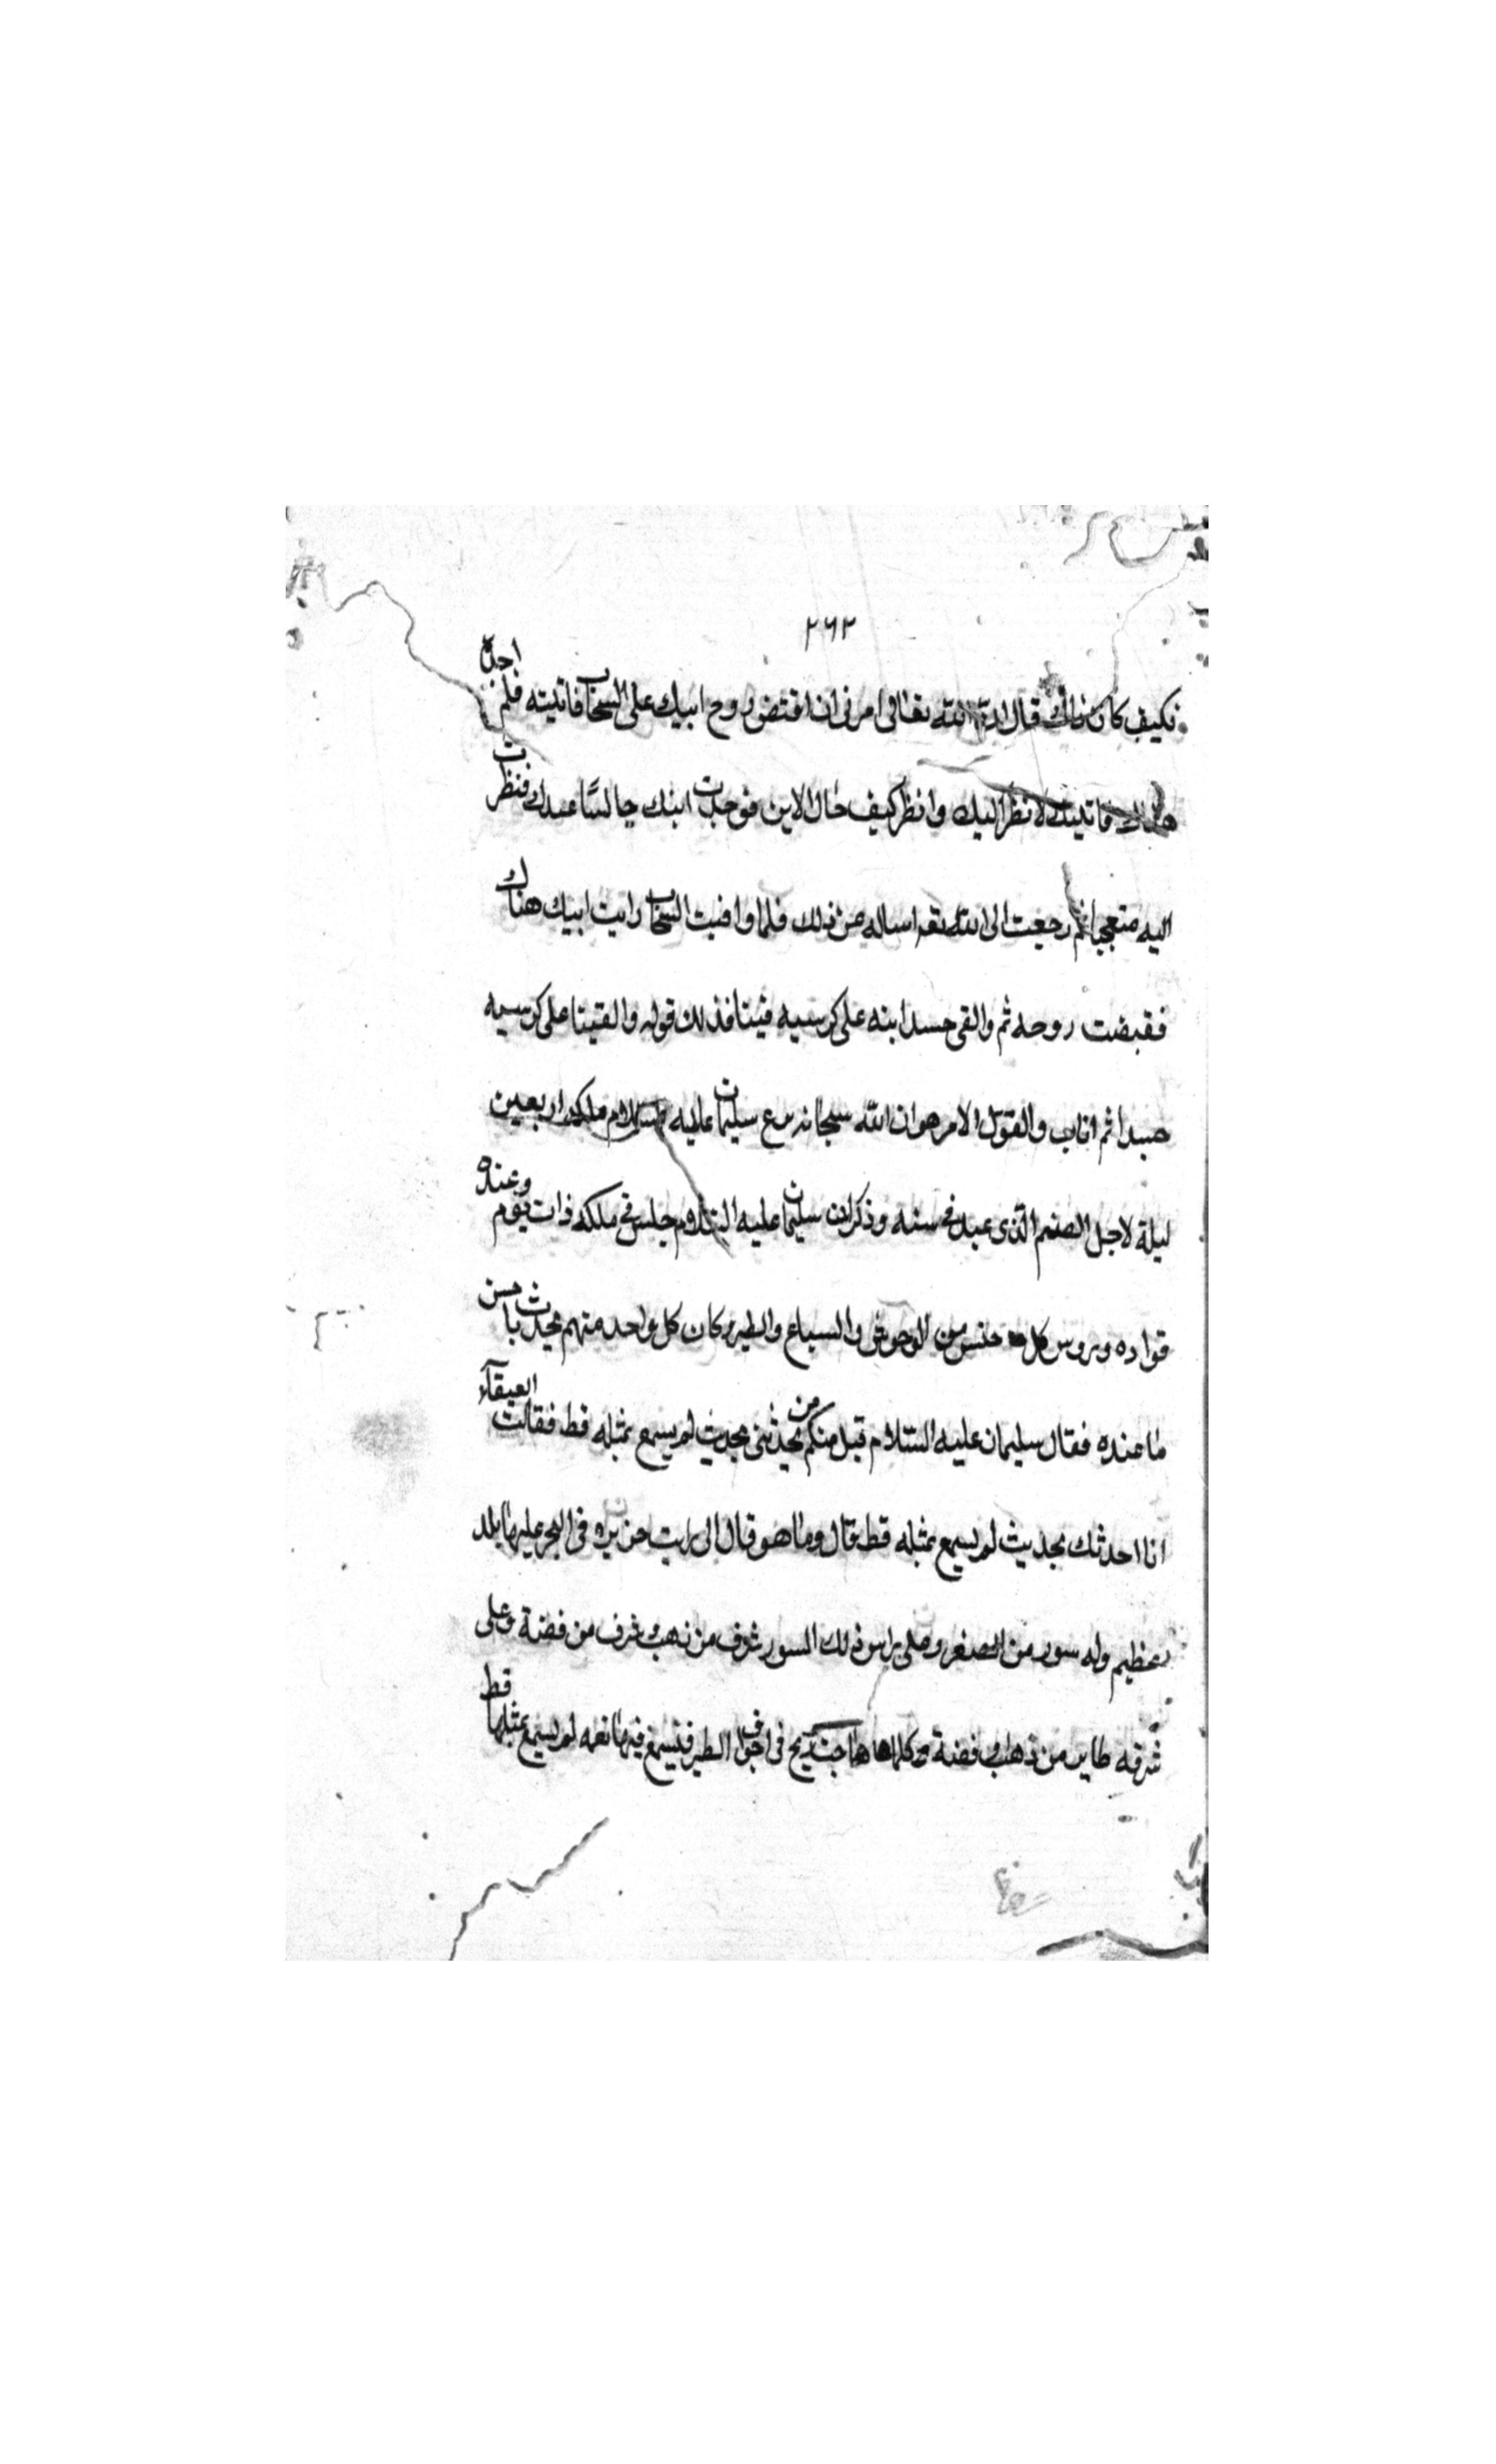 ٢٦٢
فكيف كان ذلك قال ان الله تعالى امرنى ان اقبض روح ابنك على السحاب فاتيته فلم اجده
هناك فاتيتك لانظر اليك وانظر كيف حال الابن فوجدت ابنك جالسًا عندك فنظرت
اليه متعجبا ثم رجعت الى الله تعه اساله عن ذلك فلما وافيت السحاب رايت ابنك هناك
فقبضت روحه ثم والقى جسد ابنه على كرسيه فينا فذلك قوله والقينا على كرسيه
جسدا ثم اناب والقول الامر هو ان الله سبحانه سليمان عليه السلام ملكه اربعين
ليلة لاجل الصنم الذى عبد فى سنه وذكر ان سليمان عليه السلام جلس فى ملكه ذات يوم وعنده
قواده وروس كل جنس من الوحوش والسباع والطير وكان كل واحد منهم يحدث باحسن
ما عنده فقال سليمان عليه السلام قبل منكم من يحدثنى بحديث لم يسمع بمثله قط فقالت العيقآء
انا احدثك بحديث لم يسمع بمثله قط قال وما هو قال انى رايت جزيره فى البحر عليها بلد
عظيم وله سور من الصفر وعلى راس ذلك السور شرف من ذهب وشرف من فضة وعلى
شرفه طاير من ذهب وفضة وكلما هاجت ريح فى اجواف الطير فتسمع فيها نغمه لم يسمع بمثلها قط